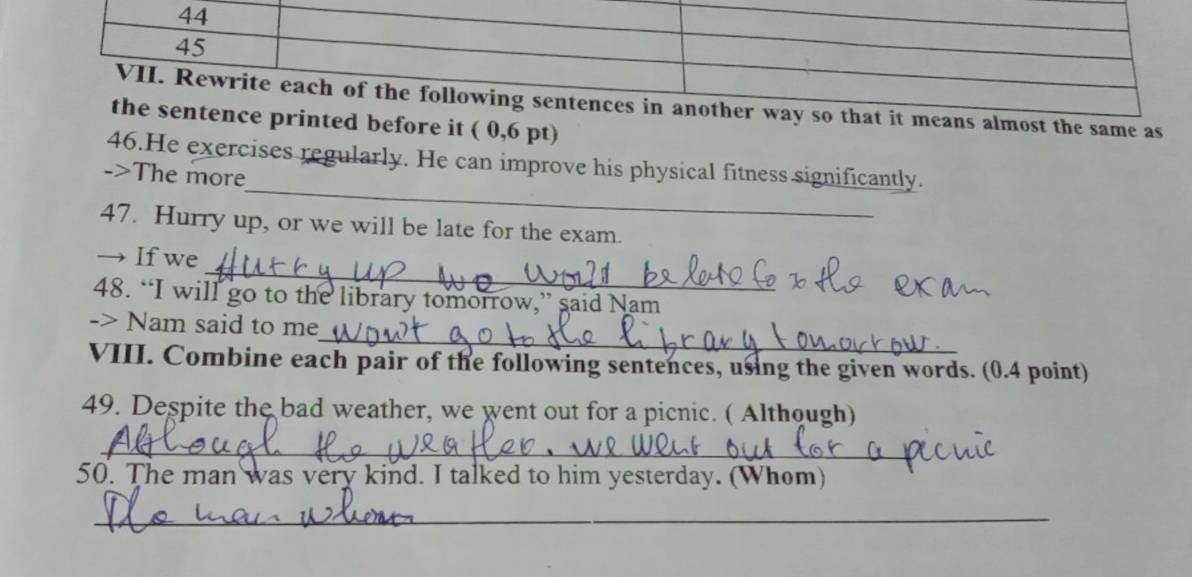 44
45
VII. Rewrite each of the following sentences in another way so that it means almost the same as
the sentence printed before it ( 0,6 pt)
46.He exercises regularly. He can improve his physical fitness significantly.
->The more
47. Hurry up, or we will be late for the exam.
→ If we Hurry up we would be late for the exam
48. “I will go to the library tomorrow,” said Nam
-> Nam said to me won't go to the library tomorrow.
VIII. Combine each pair of the following sentences, using the given words. (0.4 point)
49. Despite the bad weather, we went out for a picnic. ( Although)
Although the weather, we went out for a picnic
50. The man was very kind. I talked to him yesterday. (Whom)
The man whom